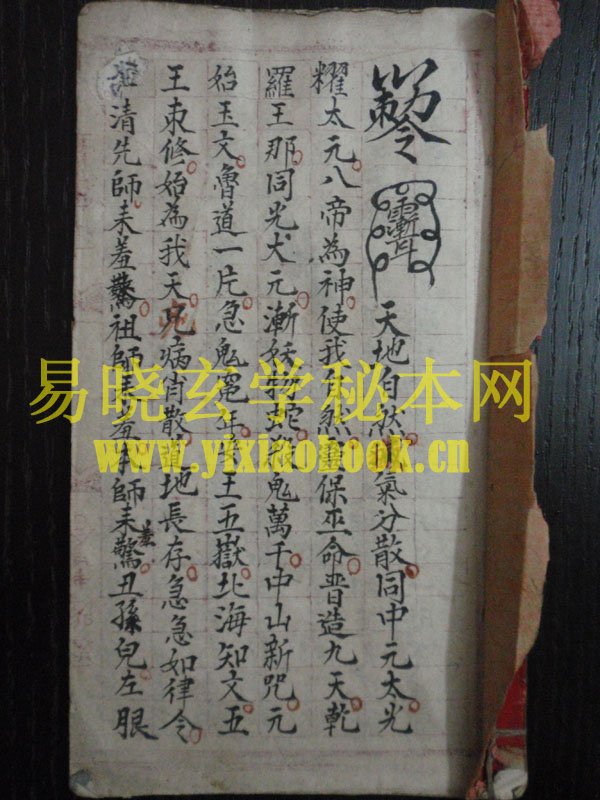 天地自然氣分散同中元太光
耀太元八帝為神使我然保巫命普造九天乾
羅王那同光犬元漸妖蛇鬼萬千中山新咒元
始玉文魯道一片急鬼王五嶽北海知文五
王束修始為我天兇病消散道地長存急急如律令
清先師未羞驚祖師未羞本師未驚羞丑孫兒左眼
易晓玄学秘本网
www.yixiaobook.cn